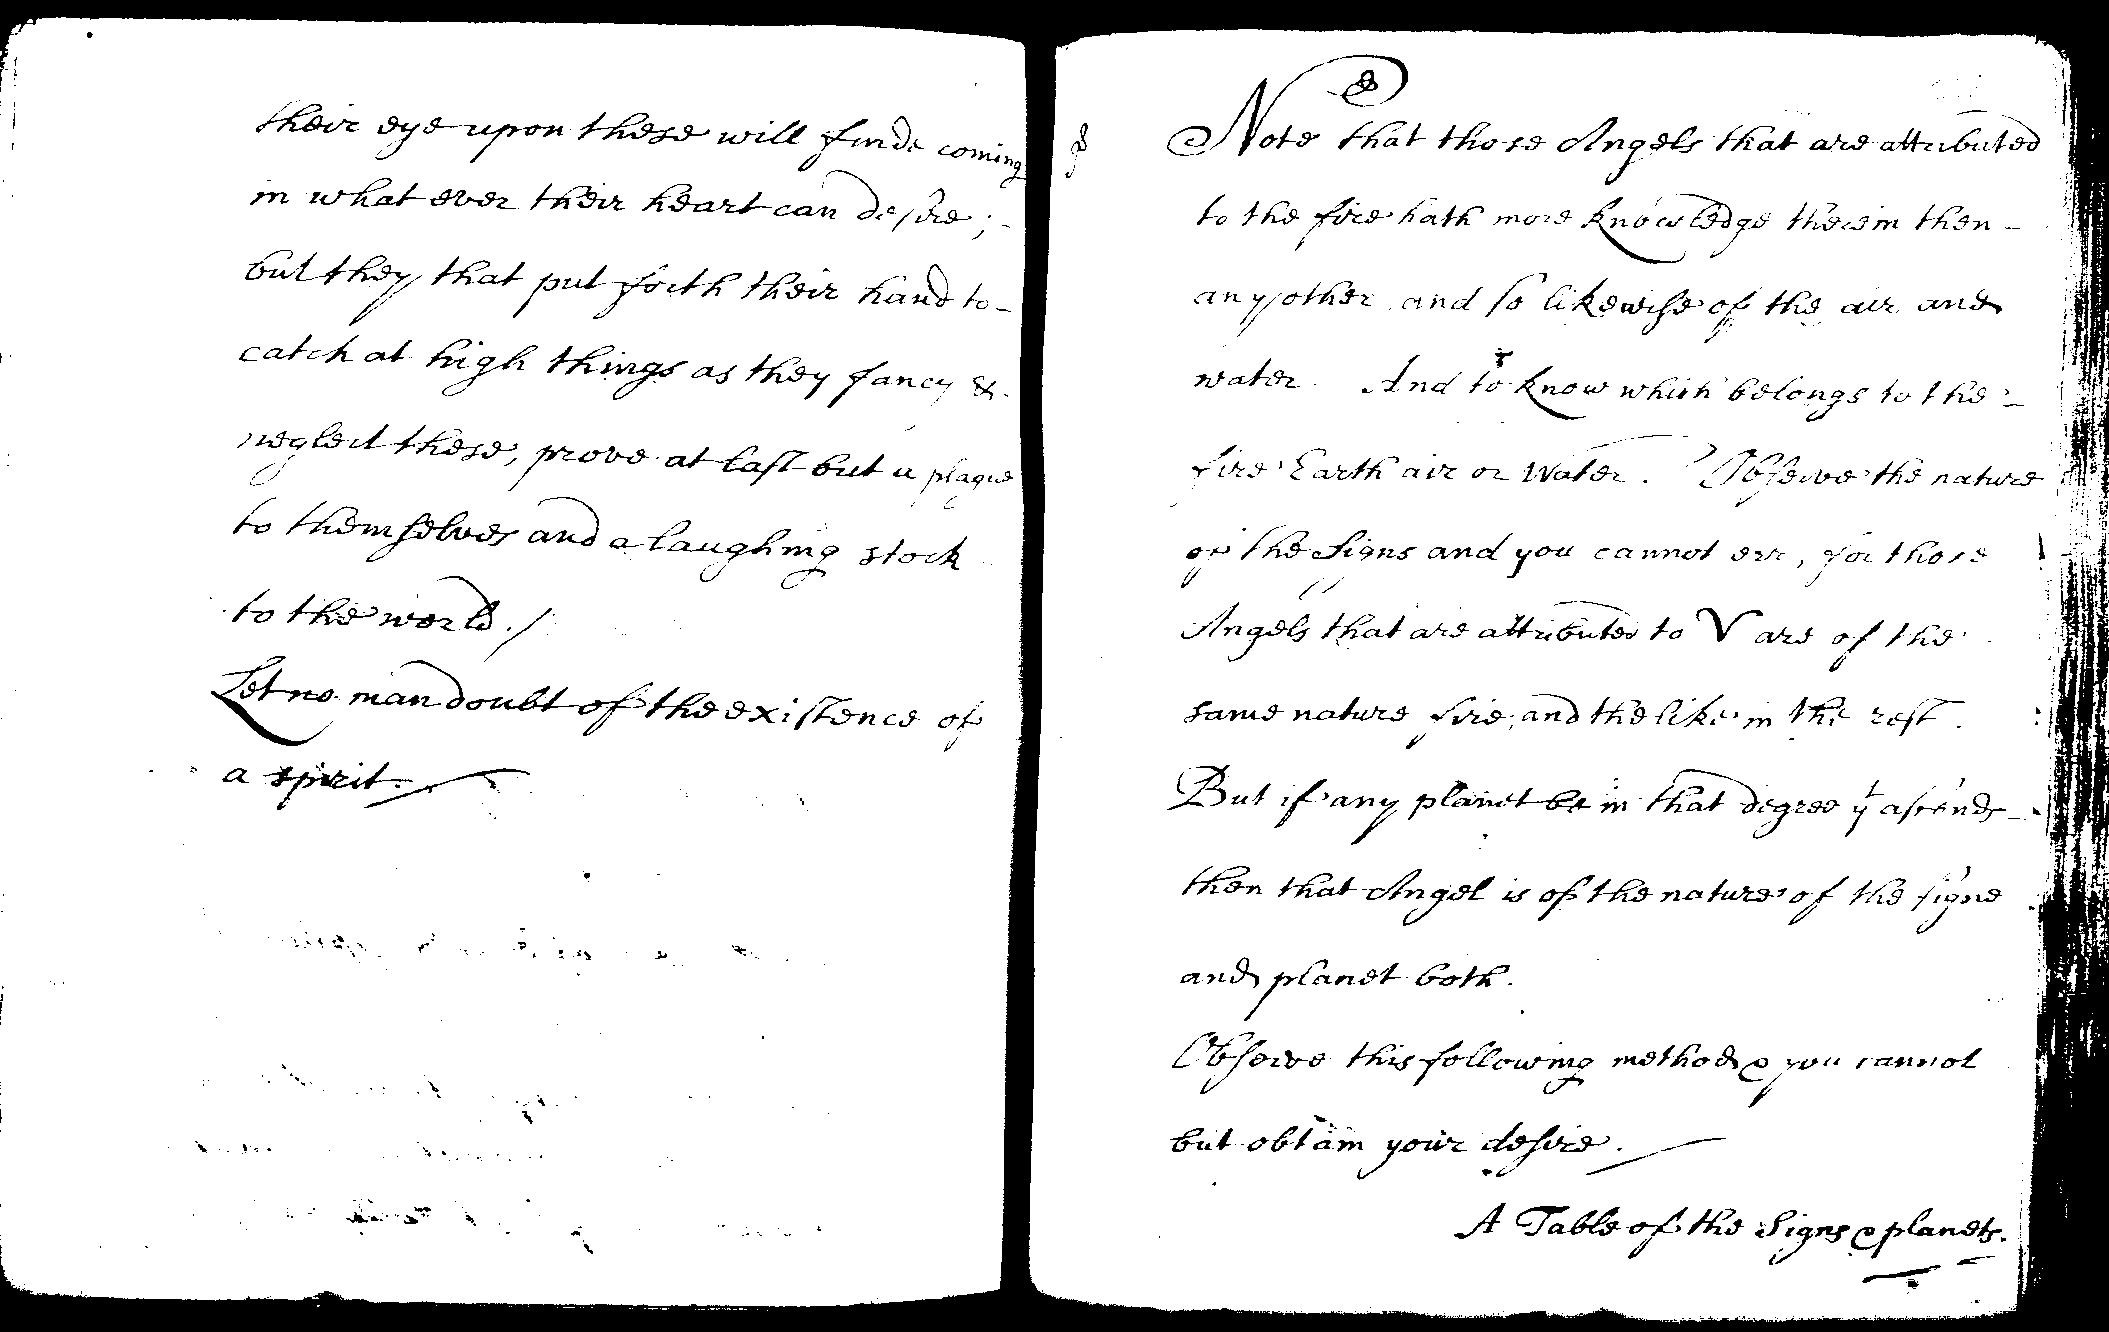 their eye upon these will finde coming
in what ever their heart can desire; -
but they that put forth their hand to -
catch at high things as they fancy &
neglect these, prove at last but a plague
to themselves and a laughing stock
to the world. /
Let no man doubt of the existence of
a spirit.
Note that those Angels that are attributed
to the fire hath more knowledge therein then -
any other and so likewise of the air and
water. And to know which belongs to the -
fire Earth air or Water. Observe the nature
of the Signs and you cannot err, for those
Angels that are attributed to ♈ are of the
same nature fire, and the like in the rest.
But if any planet be in that degree yt ascends -
then that Angel is of the nature of the signe
and planet both.
Observe this following method & you cannot
but obtain your desire.
A Table of the Signs & planets.